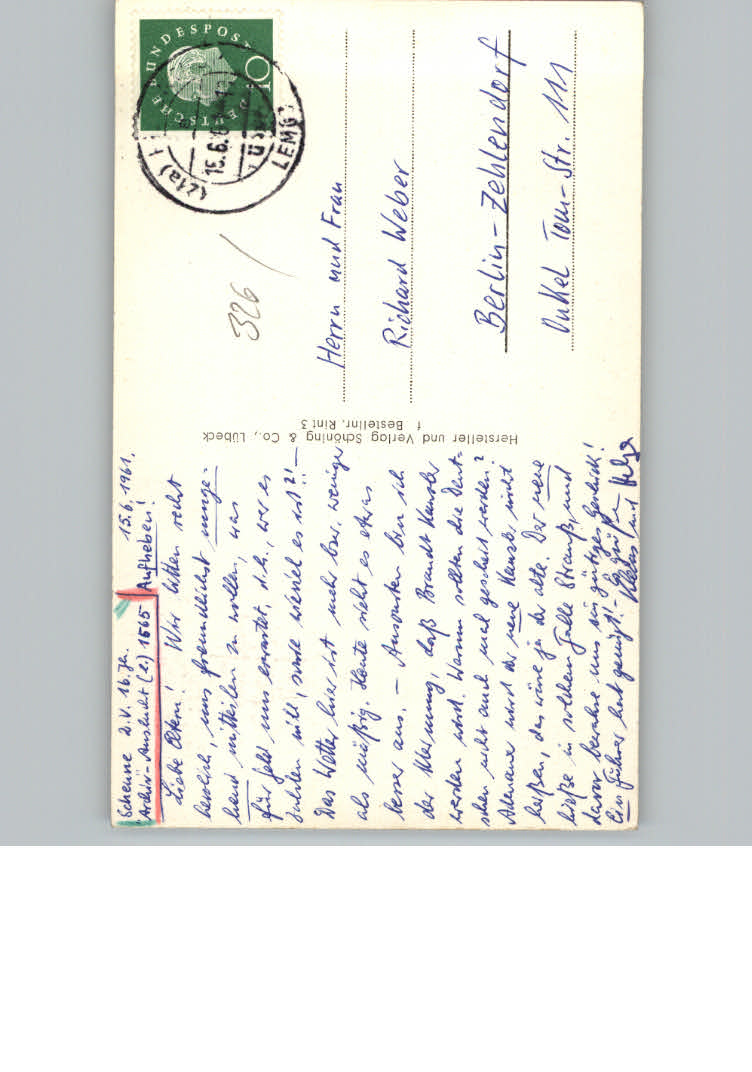 Scheune D.V. 16. Jh. 15.6.1961.
"Archiv-Auslucht (li.) 1565 Aufheben!
Liebe Eltern! Wir bitten recht
herzlich, uns freundlichst umge-
hend mitteilen zu wollen, was
für Geld uns erwartet, d.h., wer es
zahlen will, sowie wieviel es ist?! –
Das Wetter hier ist mehr bzw. weniger
als mäßig. Heute sieht es etwas
besser aus. – Ansonsten bin ich
der Meinung, daß Brandt Kanzler
werden wird. Warum sollten die Deut-
schen nicht auch mal gescheit werden?
Adenauer wird der neue Kanzler nicht
heißen, das wäre ja der alte. Der neue
hieße in solchem Falle Strauß, und
davor bewahre uns ein gütiges Geschick!
Ein Führer hat genügt! – Es grüßen
Klaus und Helga
Hersteller und Verlag Schöning & Co., Lübeck
f Bestellnr. Rint 3
DEUTSCHE BUNDESPOST
10
(21a)
15.6.61
LEMGO
326
Herrn und Frau
Richard Weber
Berlin-Zehlendorf
Onkel Tom-Str. 111